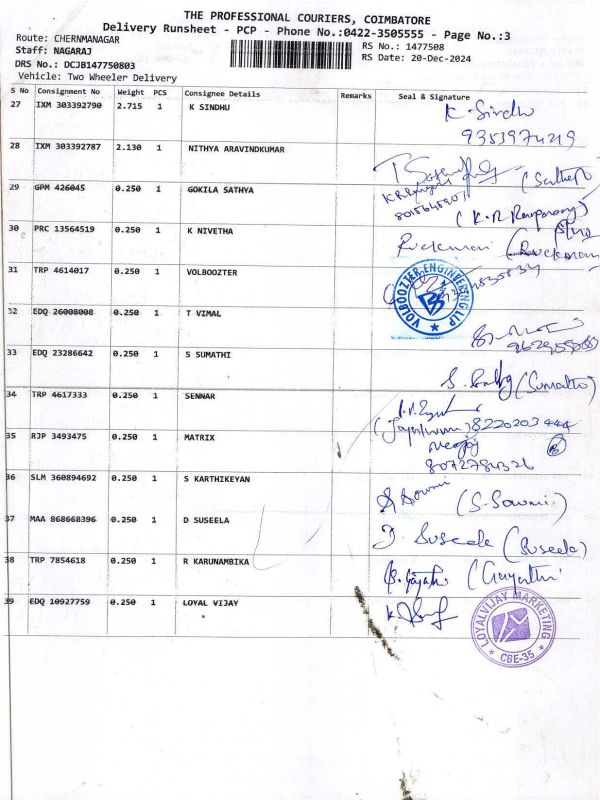 THE PROFESSIONAL COURIERS, COIMBATORE
Delivery Runsheet - PCP - Phone No.:0422-3505555 - Page No.:3
Route: CHERNMANAGAR RS No.: 1477508
Staff: NAGARAJ RS Date: 20-Dec-2024
DRS No.: DCJB147750803
Vehicle: Two Wheeler Delivery
S No Consignment No Weight PCS Consignee Details Remarks Seal & Signature
27 IXM 303392790 2.715 1 K SINDHU K. Sindhu
9353974219
28 IXM 303392787 2.130 1 NITHYA ARAVINDKUMAR
29 GPM 426045 0.250 1 GOKILA SATHYA
30 PRC 13564519 0.250 1 K NIVETHA Ruckmani (Ruckmani
31 TRP 4614017 0.250 1 VOLBOOZTER VOLBOOZTER ENGINEERING LLP
32 EDQ 26008008 0.250 1 T VIMAL
33 EDQ 23286642 0.250 1 S SUMATHI (Sumathi)
34 TRP 4617333 0.250 1 SENNAR
8220203444
35 RJP 3493475 0.250 1 MATRIX
8072784326
36 SLM 360894692 0.250 1 S KARTHIKEYAN S Sowmi (S. Sowmi)
37 MAA 868668396 0.250 1 D SUSEELA D. Suseela (Suseela)
38 TRP 7854618 0.250 1 R KARUNAMBIKA (Gayathri
39 EDQ 10927759 0.250 1 LOYAL VIJAY LOYALVIJAY MARKETING CBE-35